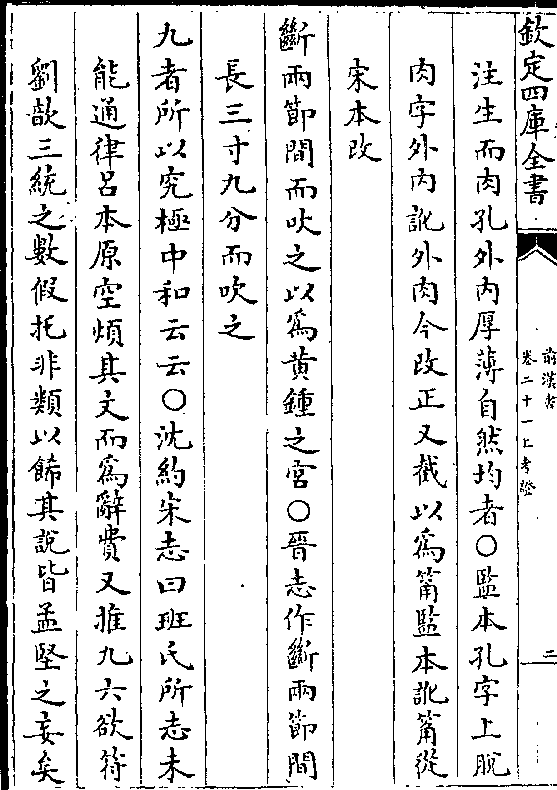 欽定四庫全書
前漢書
卷二十一上考證
二
注生而肉孔外内厚薄自然均者〇監本孔字上脫
肉字外内訛外肉今改正又截以爲筩監本訛筩從
宋本改
斷兩節間而吹之以爲黄鍾之宫〇晉志作斷兩節間
長三寸九分而吹之
九者所以究極中和云云〇沈約宋志曰班氏所志未
能通律吕本原空煩其文而爲辭費又推九六欲符
劉歆三統之數假托非類以飾其說皆孟堅之妄矣